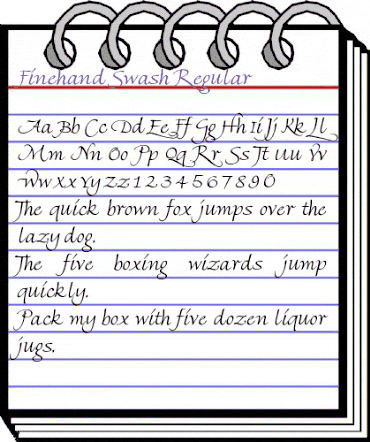 Finehand Swash Regular
Aa Bb Cc Dd Ee Ff Gg Hh Ii Jj Kk Ll
Mm Nn Oo Pp Qq Rr Ss Tt uu Vv
Ww Xx Yy Zz 1 2 3 4 5 6 7 8 9 0
The quick brown fox jumps over the
lazy dog.
The five boxing wizards jump
quickly.
Pack my box with five dozen liquor
jugs.